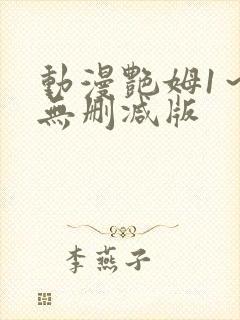 動漫艷姆1~
無刪減版
李燕子